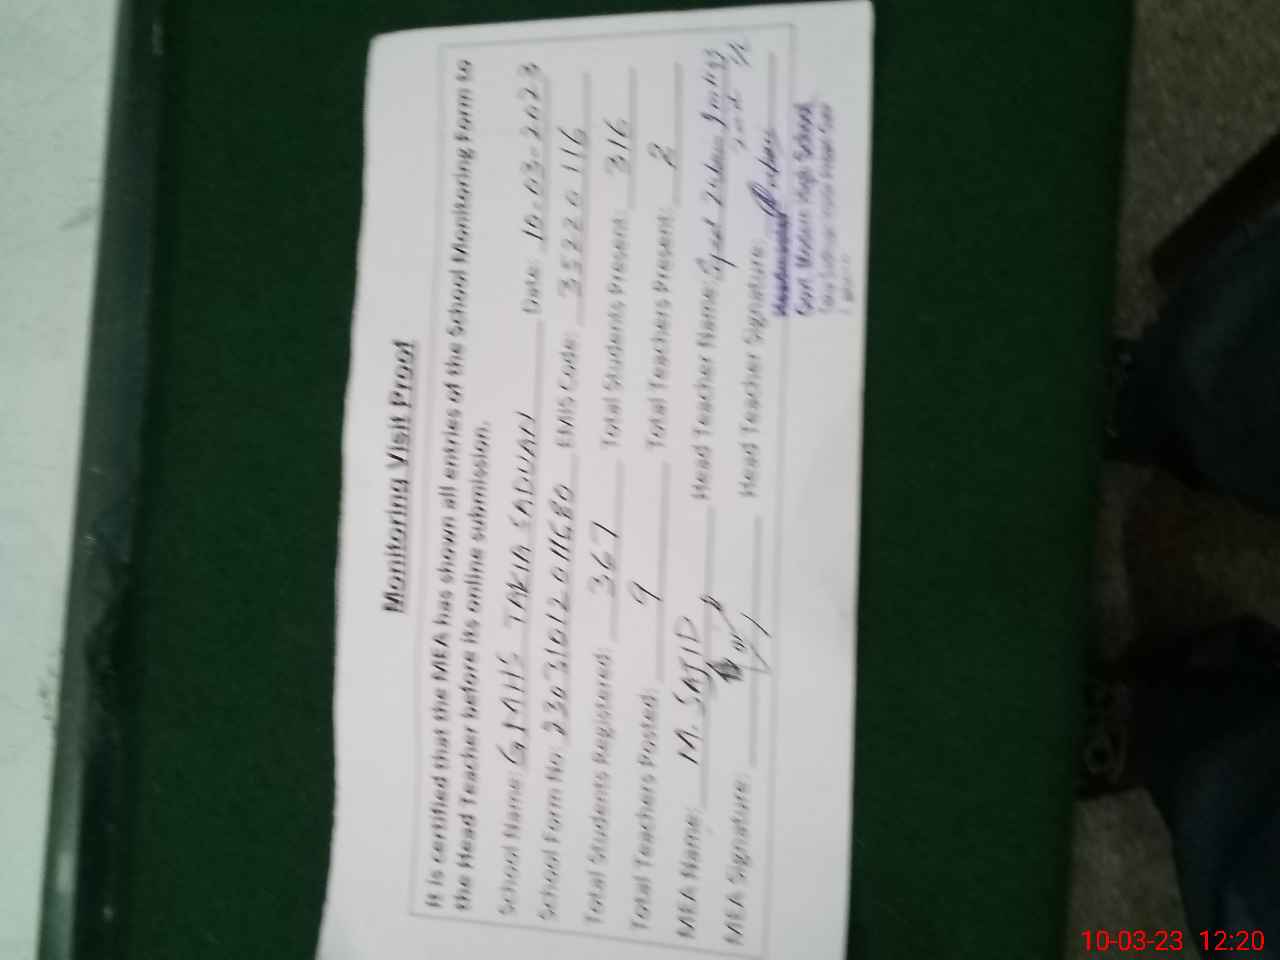 Monitoring Visit Proof
It is certified that the MEA has shown all entries of the School Monitoring Form to
the Head Teacher before its online submission.
School Name: GMHS TAKIA SADUAN Date: 10-03-2023
School Form No: 23031012011680 EMIS Code: 35220116
Total Students Registered: 367 Total Students Present: 316
Total Teachers Posted: 9 Total Teachers Present: 2
MEA Name: M. SAJID Head Teacher Name: Syed
MEA Signature: Head Teacher Signature:
Govt. Modern High School
10-03-23 12:20